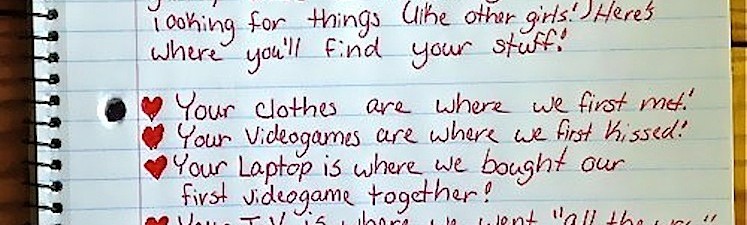 looking for things (like other girls!) Here's
where you'll find your stuff!
♥ Your clothes are where we first met!
♥ Your Videogames are where we first kissed!
♥ Your Laptop is where we bought our
first videogame together!
♥ Your T.V. is where we went "all the way"